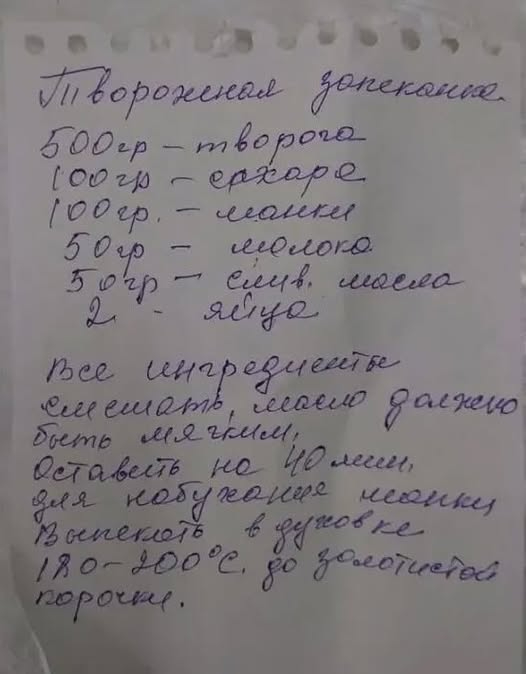 Творожная запеканка.
500гр – творога
100гр – сахара
100гр. – манки
50гр – молока
50гр – слив. масла
2 - яйца
Все ингредиенты
смешать, масло должно
быть мягким.
Оставить на 40 мин.
для набухания манки
Выпекать в духовке
180-200°С. до золотистой
корочки.